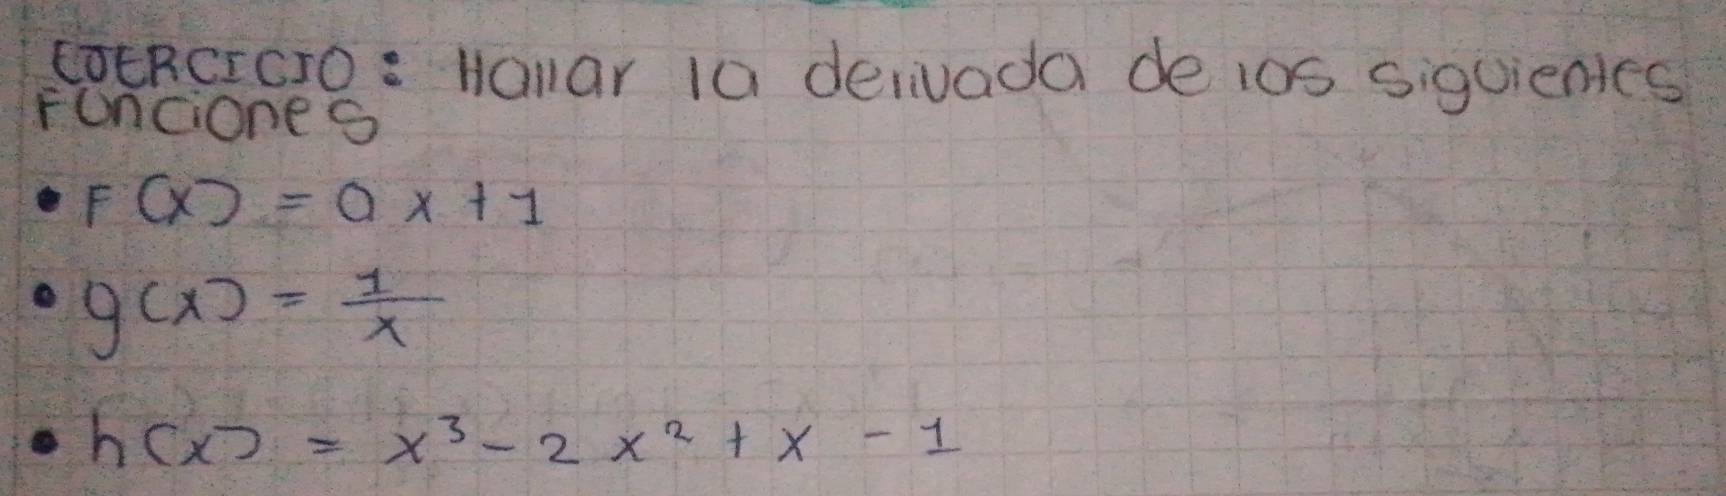 EJERCICIO: Hallar la derivada de las siguientes
Funciones
• F(x) = ax + 1
• g(x) = 1/x
• h(x) = x³ - 2x² + x - 1